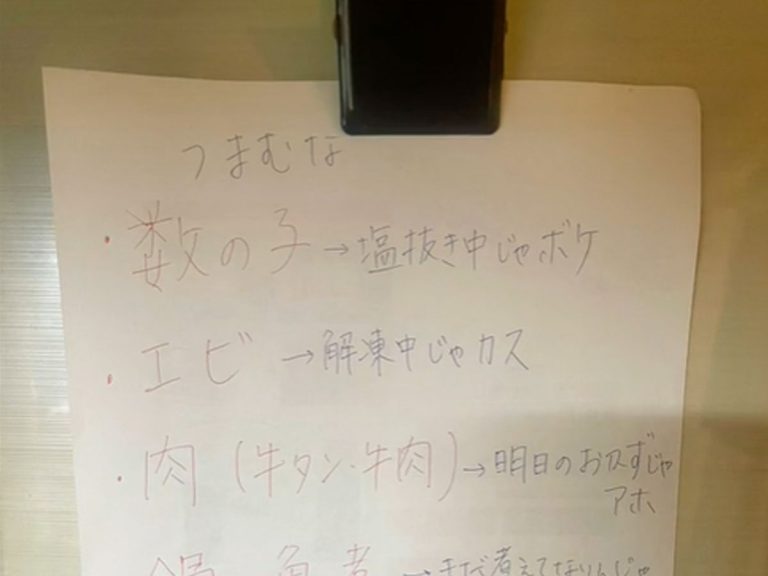 つまむな
・数の子→塩抜き中じゃボケ
・エビ→解凍中じゃカス
・肉(牛タン・牛肉)→明日のおかずじゃ
アホ
→まだ煮えてないんじゃ